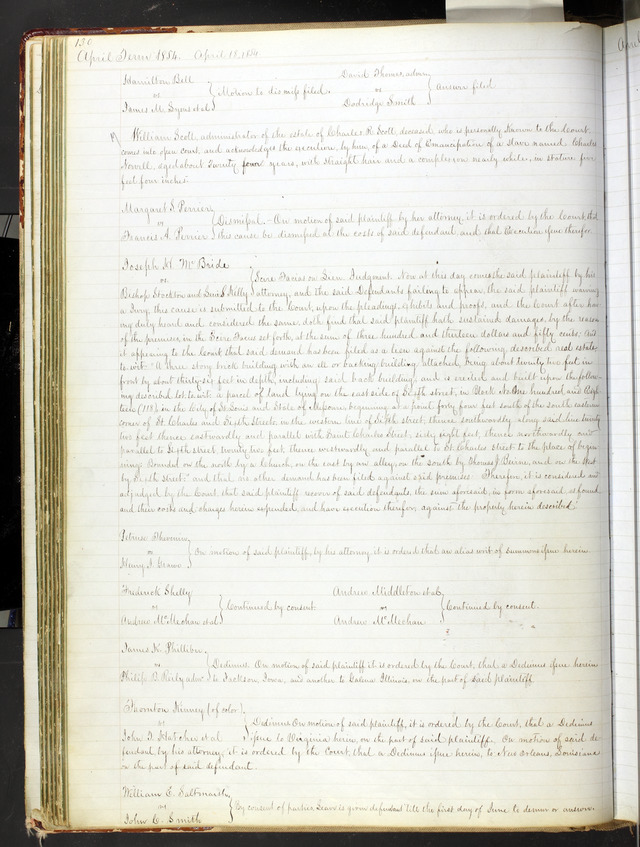 130
April Term 1854. April 18, 1854
Hamilton Bell
vs
James M. Lyons et al
Motion to dismiss filed.
David Thomas, admr
vs
Dodredge Smith
answer filed
William Scott, administrator of the estate of Charles R. Scott, deceased who is personally known to the Court,
comes into open court, and acknowledges the execution, by him, of a Deed of Emancipation of a slave named Charles
Norvell, aged about Twenty four years, with straight hair and a complexion nearly white, in stature five
feet four inches.
Margaret S. Perrier
vs
Francis A. Perrier
Dismissal. On motion of said plaintiff by her attorney, it is ordered by the Court, that
this cause be dismissed at the costs of said defendant and that Execution issue therefor.
Joseph H. McBride
vs
Bishop Stockton and Lewis S. Kelly
Scire Facias on Lien. Judgment. Now at this day comes the said plaintiff by his
attorney, and the said Defendants failing to appear, the said plaintiff waiving
a Jury, this cause is submitted to the Court, upon the pleadings, exhibits and proofs, and the Court after hav
ing duly heard and considered the same, doth find that said plaintiff hath sustained damages, by the reason
of the premises, in the Scire Facias set forth, at the sum of three hundred and thirteen dollars and fifty cents; And
it appearing to the Court that said demand has been filed as a lien against the following described real estate
to wit: "A three story brick building with an ell or backing building attached, being about twenty two feet in
front by about thirty six feet in depth, including said back building, and is erected and built upon the follow-
ing described lot to wit a parcel of land lying on the east side of Sixth street, in Block No. One hundred and Eigh
teen (118) in the City of St. Louis and State of Missouri, beginning at a point forty four feet south of the south eastern
corner of St. Charles and Sixth Streets, in the western line of Sixth street; thence southwardly along said line twenty
two feet thence eastwardly and parallel with Saint Charles Street, sixty eight feet, thence northwardly and
parallel to Sixth street twenty two feet, thence westwardly and parallel to St. Charles street to the place of begin
ning: Bounded on the north by a church, on the east by an alley, on the south by Thomas J. Beirne, and on the West
by Sixth street;" and that no other demand has been filed against said premises. Therefore, it is considered and
adjudged by the Court that said plaintiff recover of said defendants, the sum aforesaid, in form aforesaid, as found
and their costs and charges herein expended, and have execution therefor, against the property herein described.
vs
Henry T.
On motion of said plaintiff, by his attorney it is ordered that an alias writ of summons issue herein.
Frederick Shelly
vs
Andrew McMechan et al
Continued by consent.
Andrew Middleton et al
vs
Andrew McMechan
Continued by consent.
James K. Philliber
vs
Philip B. admr
Dedimus. On motion of said plaintiff it is ordered by the Court, that a Dedimus issue herein
to Jackson, Iowa, and another to Galena Illinois, on the part of said plaintiff
Thornton Kinney (of color)
vs
John F. Hatcher et al
Dedimus On motion of said plaintiff, it is ordered by the Court, that a Dedimus
issue to Virginia herein, on the part of said plaintiff. On motion of said de
fendant, by his attorney, it is ordered by the Court that a Dedimus issue herein, to New Orleans, Louisiana
on the part of said defendant.
William E. Saltmarsh
vs
John C. Smith
By consent of parties, Leave is given defendant till the first day of June to demur or answer.